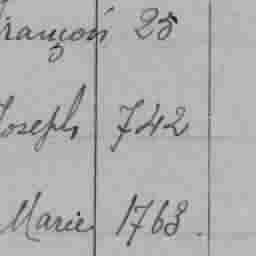 François 25
Joseph 742
Marie 1763.